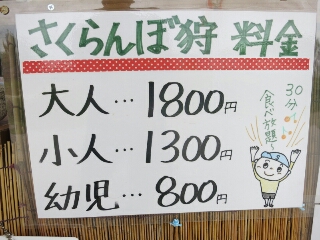 さくらんぼ狩 料金
大人…1800円
小人…1300円
幼児…800円
30分
食べ放題